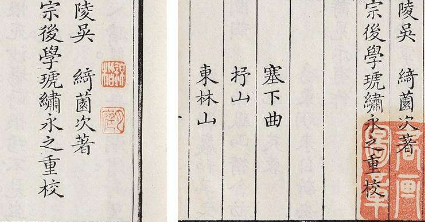 陵吳 綺薗次著
宗後學琥繡永之重校
陵吳 綺薗次著
宗後學琥繡永之重校
塞下曲
抒山
東林山